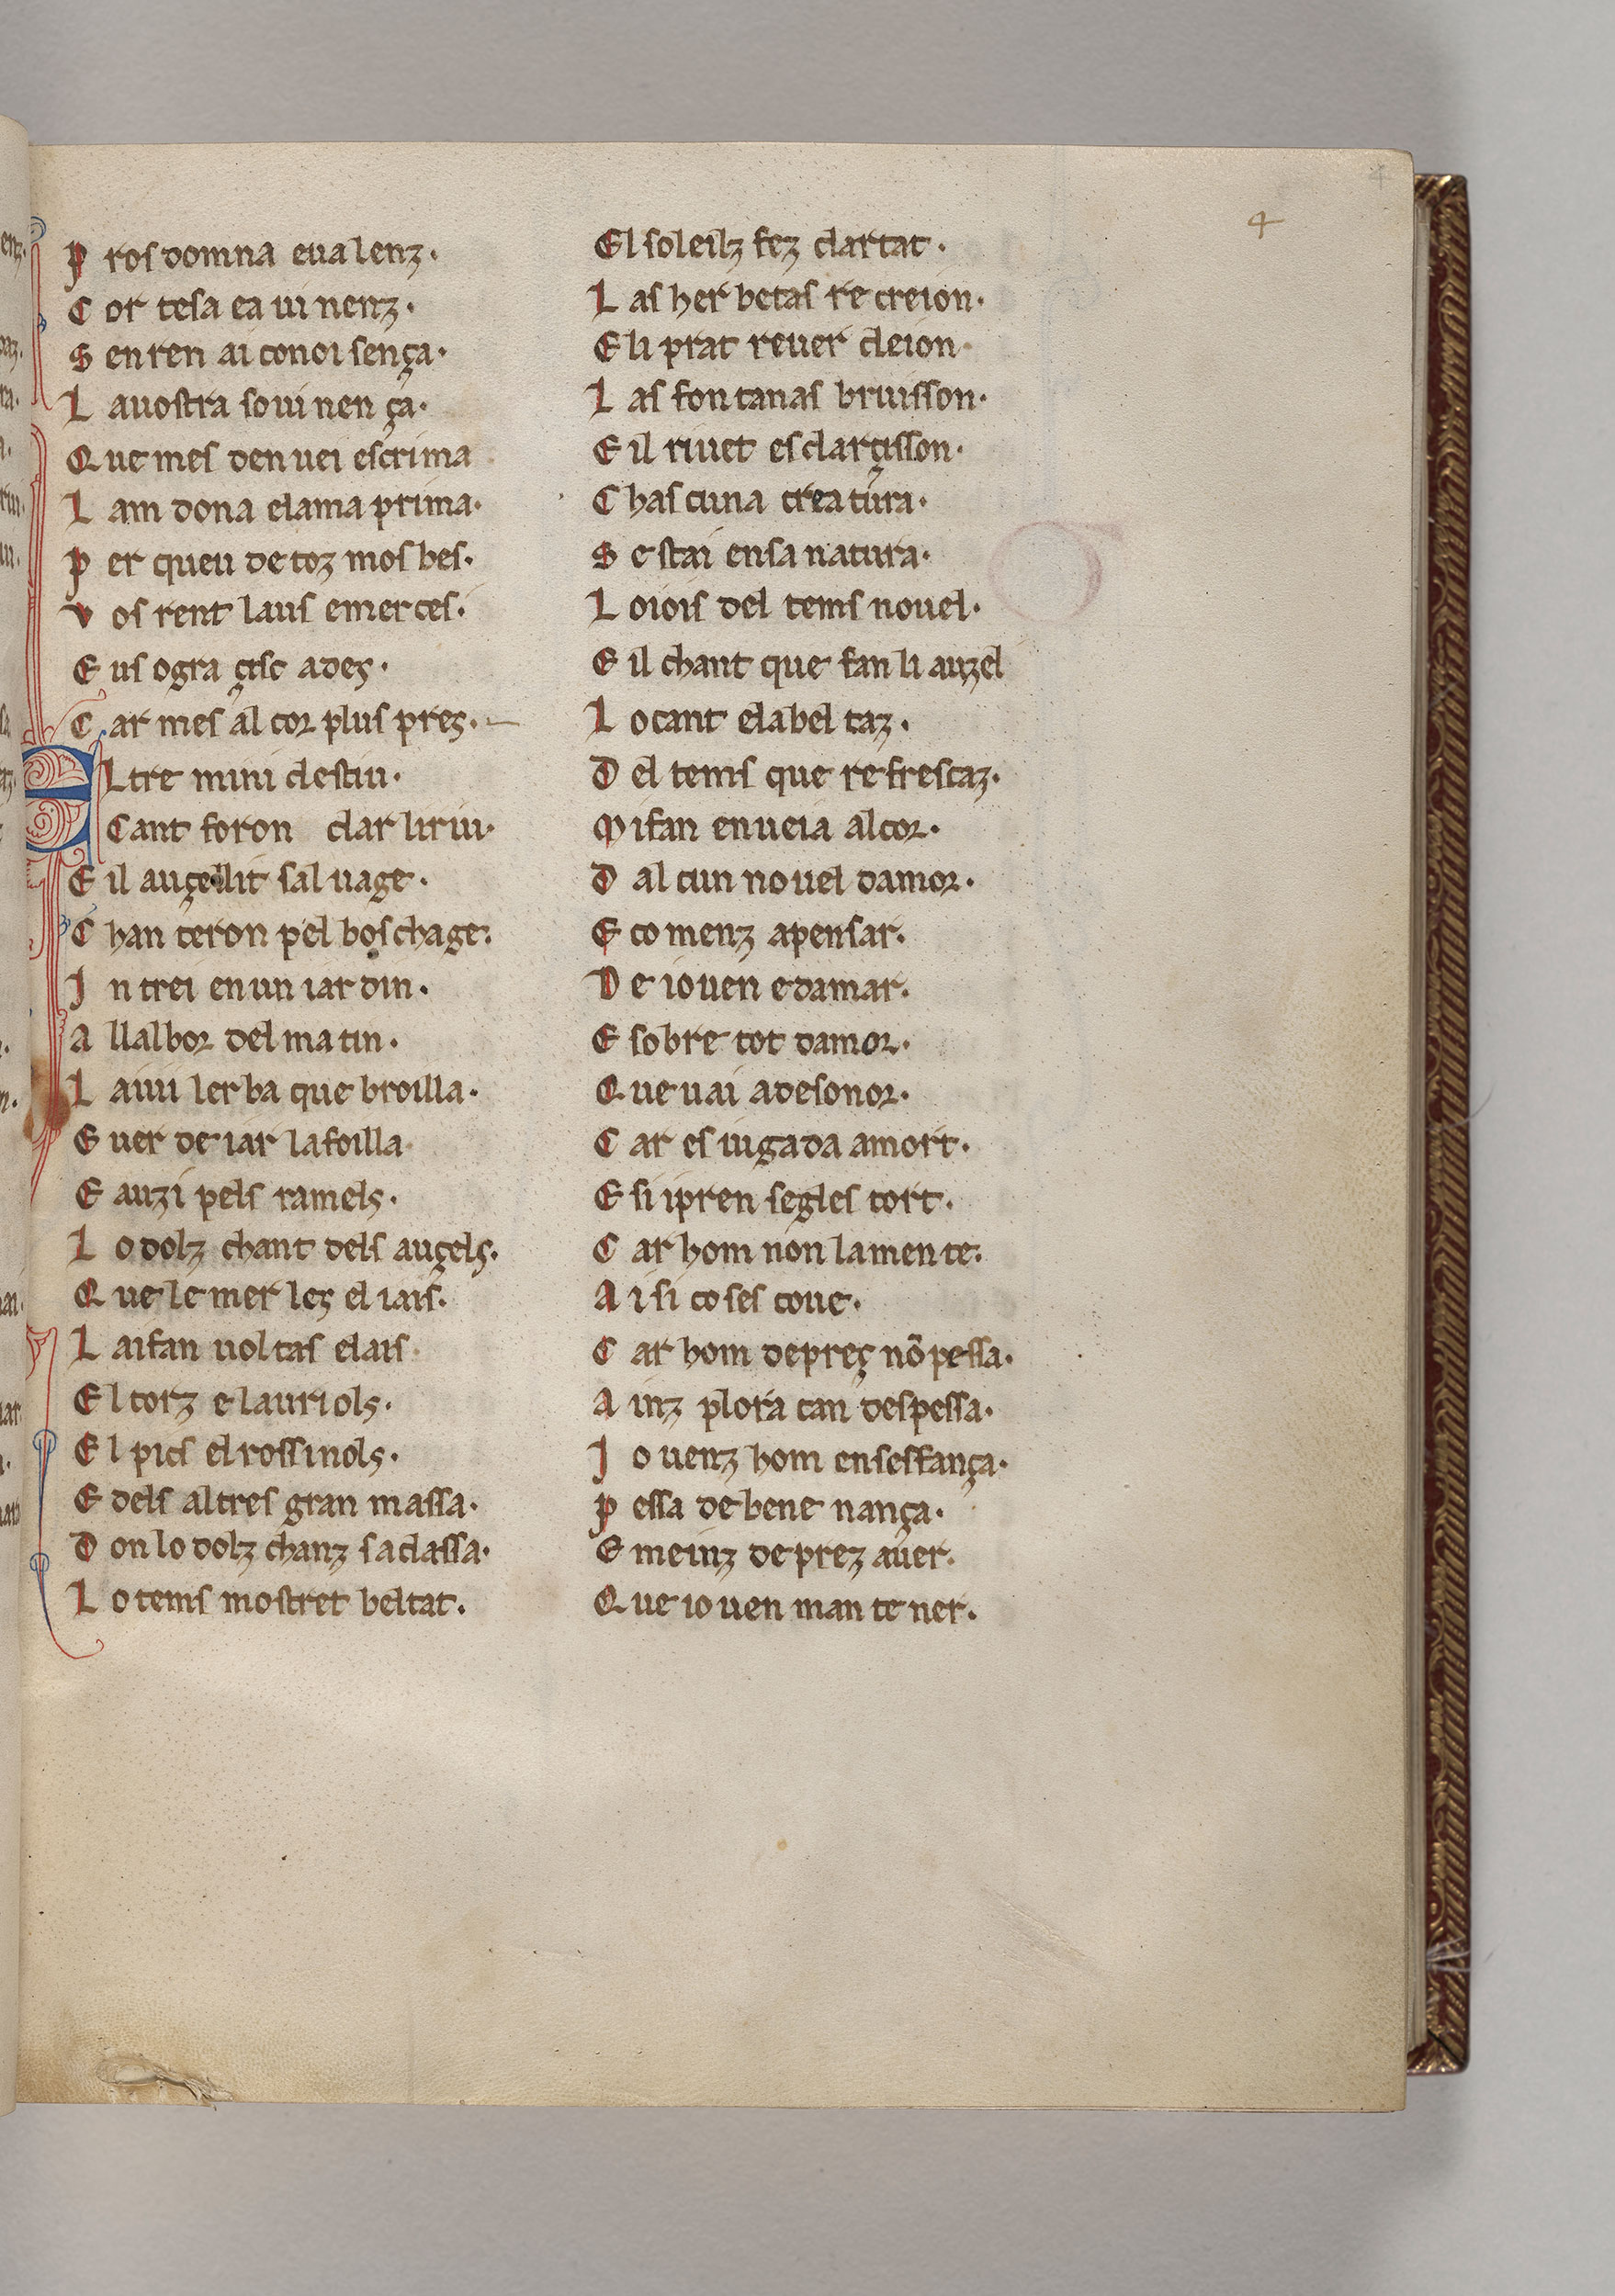 4
Pros domna eualenz·
Cor tesa ea uinenz·
Sen ren ai conoisença·
Lauostra souinença·
Que mes denuei escrima
Lam dona elama prima·
Per queu de toz mos bes·
Vos rent laus emerces·
Eus o graçisc ades·
Car mes al cor plus pres·
ELtre mini clestiu·
Cant foron clar li riu·
Eil auçellit saluage·
Chanteron pel boschage·
Intrei en un iardin·
Allalbor del matin·
Laiui lerba que broilla·
Euer de iar lafoilla·
E auzi pels ramels·
Lo dolz chant dels auçels·
Que le merles el iais·
Laifan uoltas elais·
El torz e lauriols·
El pics el rossinols·
E dels altres gran massa·
Don lo dolz chanz saclassa·
Lo tems mostret beltat·
El soleilz fez clartat·
Las herbetas recreion·
Eli prat reuer deion·
Las fontanas bruisson·
Eil riuet esclarçisson·
Chascuna creatura·
Sestai ensa natura·
Lo iois del tems nouel·
Eil chant que fan li auzel
Lo cant ela beltaz·
Del tems que refrescaz·
Mi fan enueia al cor·
Dalcun nouel damor·
E comenz a pensar·
De iouen edamar·
E sobre tot damor·
Que uai adesonor·
Car es iugada amort·
E si ipren segles tort·
Car hom non lamente·
Aisi co ses coue·
Car hom de preç nõ pessa·
Ainz plora can despessa·
Iouenz hom en sesfança·
Pessa de bene nança·
E meinz de prez auer·
Que iouen mantener·